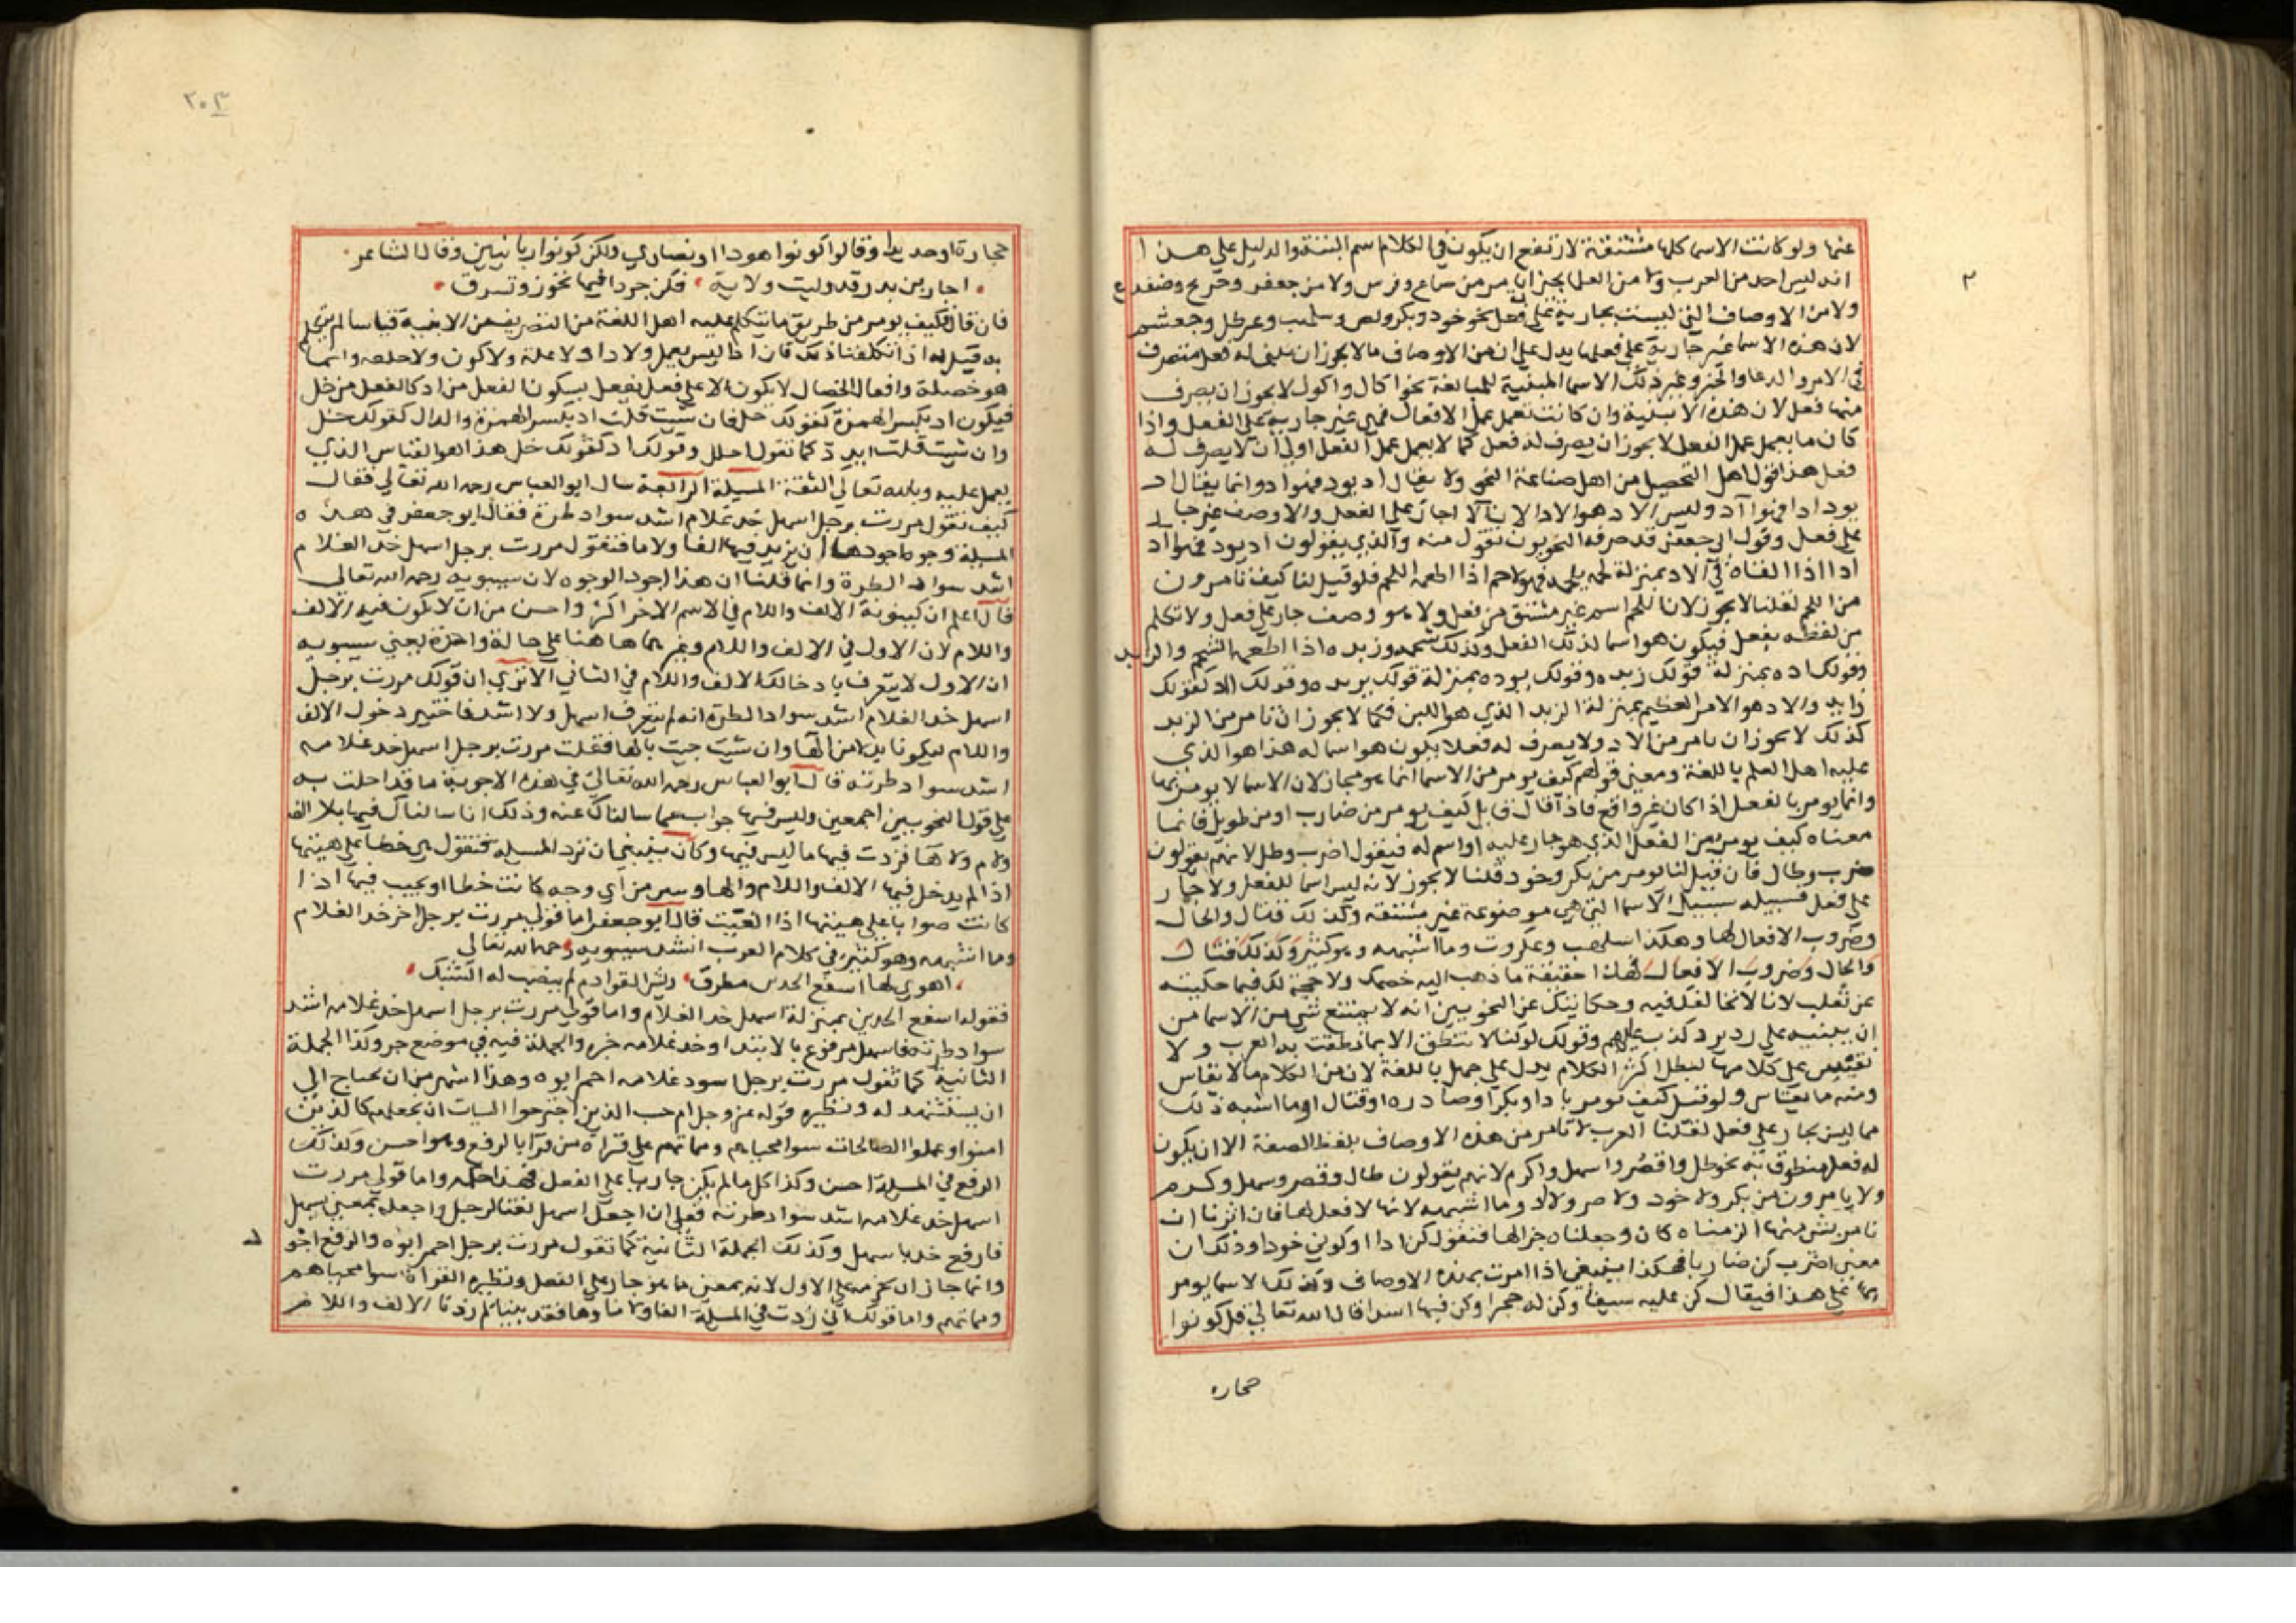 عنها ولو كانت الاسما كلها مشتقة لارتفع ان يكون في الكلام اسم البتة والدليل علي هذا
انه ليس احد من العرب ولا من العلما يجيز ان يامر من سماع وفرس ولا من جعفر وضفدع
ولا من الاوصاف التي ليست بجارية علي فعل نحو خود وبكر وسلهب وعرطل وجعشم
لان هذه الاسما غير جارية علي فعلها يدل علي ان من الاوصاف ما لا يجوز ان يبني له فعل متصرف
في الامر والدعا والخبر وغير ذلك الاسما المبنية للمبالغة نحو اكال واكول لا يجوز ان يصرف
منها فعل لان هذه الابنية وان كانت تعمل عمل الافعال فهي غير جارية علي الفعل واذا
كان ما يعمل عمل الفعل لا يجوز ان يصرف له فعل كما لا يعمل عمل الفعل اولي ان لا يصرف له
فعل هذا قول اهل التحصيل من اهل صناعة النحو ولا يقال اد يود فهو ادو انما يقال اد
يود ادا فهو آد وليس الاد هو الاد لان الآد جار علي الفعل والاوصف غير جار
علي فعل وقول ابي جعفر قد صرفه النحويون نقول منه والذي يقولون اد يود فهو اد
ادا اذا القاه في الاد بمنزلة لحمه يلحمه فهو لاحم اذا اطعمه اللحم فلو قيل لنا كيف نامر من
من اللحم لقلنا لا يجوز لان اللحم اسم غير مشتق من فعل ولا هو وصف جار علي فعل ولا تكلم
من لفظه بفعل فيكون هو اسما لذلك الفعل وكذلك شحمه وزبده اذا اطعمه الشحم والزبد
وقولك اده بمنزلة قولك زبده وقولك يوده بمنزلة قولك يزبده وقولك الاد كقولك
زابد والاد هو الامر العظيم بمنزلة الزبد الذي هو اللبن فكما لا يجوز ان نامر من الزبد
كذلك لا يجوز ان نامر من الاد ولا يعرف له فعلا يكون هو اسما له هذا هو الذي
عليه اهل العلم باللغة ومعني قولهم كيف يومر من الاسما انما هو مجاز لان الاسما لا يومر بها
وانما يومر بالفعل اذا كان غير واقع فاذا قال قايل كيف يومر من ضارب او من طويل فانما
معناه كيف يومر من الفعل الذي هو جار عليه او اسم له فيقول اضرب وطل لانهم يقولون
ضرب وطال فان قيل لنا يومر من بكر وخود قلنا لا يجوز لانه ليس اسما للفعل ولا جار
علي فعل فسبيله سبيل الاسما التي هي موضوعة غير مشتقه وكذلك قتال والحال
وضروب الافعال لها وهكذا اسلهب وعكروت وما اشبهه وهو كثير وكذلك قتال
والحال وضروب الافعال فهذا حقيقة ما ذهب اليه خصمك ولا حجة لك فيما حكيته
عن ثعلب لانا لا نخالفك فيه وحكايتك عن النحويين انه لا يمتنع شي من الاسما من
ان يبنيه علي رد يرد كذب عليهم وقولك لو كنا لا ننطق الا بما نطقت به العرب ولا
نقيس علي كلامها لبطل اكثر الكلام يدل علي جهل باللغة لان من الكلام ما لا يقاس
ومنه ما يقاس ولو قيل كيف يومر باد او بكر او صادره او قتال او ما اشبه ذلك
مما ليس بجار علي فعل لقلنا العرب لا تامر من هذه الاوصاف بلفظ الصفة الا ان يكون
له فعل منطوق به نحو طل واقصر واسهل واكرم لانهم يقولون طال وقصر وسهل وكرم
ولا يامرون من بكر ولا خود ولا صر ولا اد وما اشبهه لانها لا فعل لها فان اثرنا ان
نامر بشي منها الزمناه كان وجعلناه خبرا لها فنقول كن ادا او كوني خودا وذلك ان
معني اضرب كن ضاربا فهكذا ينبغي اذا امرت بهذه الاوصاف وكذلك الاسما يومر
بها علي هذا فيقال كن عليه سيفا وكن له حجرا وكن فيها اسدا قال الله تعالي قل كونوا
حجاره
٢٠٣
حجارة او حديدا وقالوا كونوا هودا او نصاري ولكن كونوا ربانيين وقال الشاعر
احار بن بدر قد وليت ولاية فكن جرذا فيها تخون وتسرق
فان قال فكيف يومر من طريق ما يتكلم عليه اهل اللغة من التصريف من الابنية قياسا لم يتكلم
به قيل له اذا تكلفنا ذلك فان ادا ليس بعمل ولا دا ولا علة ولا كون ولا حلمه وانما
هو خصلة وافعال الخصال لا يكون الا علي فعل يفعل يكون الفعل من اد كالفعل من خل
فيكون اد بكسر الهمزة كقولك خل فان شيت قلت اد بكسر الهمزة والدال كقولك خل
وان شيت قلت ايدد كما تقول احلل وقولك اد كقولك خل هذا هو القياس الذي
يعمل عليه وبالله تعالي الثقة المسيلة الرابعة سال ابو العباس رحمه الله تعالي فقال
كيف نقول مررت برجل اسهل خد غلام اشد سواد طرة فقال ابو جعفر في هذه
المسيلة وجوه اجودها ان نزيد فيها الفا ولاما فتقول مررت برجل اسهل خد الغلام
اشد سواد الطرة وانما قلنا ان هذا اجود الوجوه لان سيبويه رحمه الله تعالي
قال اعلم ان كينونة الالف واللام في الاسم الاخر اكثر واحسن من ان لا يكون فيه الالف
واللام لان الاول في الالف واللام وغيرهما هاهنا علي حالة واحدة يعني سيبويه
ان الاول لا يتعرف بادخالك الالف واللام في الثاني الا تري ان قولك مررت برجل
اسهل خد الغلام اشد سواد الطرة انه لم يتعرف اسهل ولا اشد فاختير دخول الالف
واللام ليكونا بدلا من الها وان شيت جيت بالها فقلت مررت برجل اسهل خد غلامه
اشد سواد طرته قال ابو العباس رحمه الله تعالي في هذه الاجوبة ما قد احلت به
علي قول النحويين اجمعين وليس فيها جواب عما سالناك عنه وذلك انا سالناك فيها بلا الف
ولام ولا ها فزدت فيها ما ليس فيها وكان ينبغي ان ترد المسيلة فتقول هي خطا علي هيئتها
اذا لم يدخل فيها الالف واللام والها وسر من اي وجه كانت خطا او يجيب فيها اذا
كانت صوابا علي هيئتها اذا القيت قال ابو جعفر اما قولي مررت برجل احمر خد الغلام
وما اشبهه وهو كثير في كلام العرب انشد سيبويه رحمه الله تعالي
اهوي لها اسفع الخدين مطرق ريش القوادم لم ينصب له الشبك
فقوله اسفع الخدين بمنزلة اسهل خد الغلام واما قولي مررت برجل اسهل خد غلامه اشد
سواد طرته فاسهل مرفوع بالابتدا وخد غلامه خبره والجملة فيه في موضع جر وكذا الجملة
الثانية كما تقول مررت برجل اسود غلامه احمر ابوه وهذا اشهر من ان يحتاج الي
ان يستشهد له ونظيره قوله عز وجل ام حسب الذين اجترحوا السيات ان نجعلهم كالذين
امنوا وعملوا الصالحات سوا محياهم ومماتهم علي قراة من قرا بالرفع وهو احسن وكذلك
الرفع في المسيلة احسن وكذا كل ما لم يكن جاريا علي الفعل فهذا حكمه واما قولي مررت
اسهل خد غلامه اشد سواد طرته فعلي ان اجعل اسهل نعتا لرجل واجعله بمعني سهل
فارفع خد باسهل وكذلك الجملة الثانية كما تقول مررت برجل احمر ابوه والرفع اجو
وانما جاز ان نجريه علي الاول لانه بمعني ما هو جار علي الفعل ونظيره القراة سوا محياهم
ومماتهم واما قولك اني زدت في المسيلة الفا ولاما وها فقد بينا لم زدنا الالف واللام